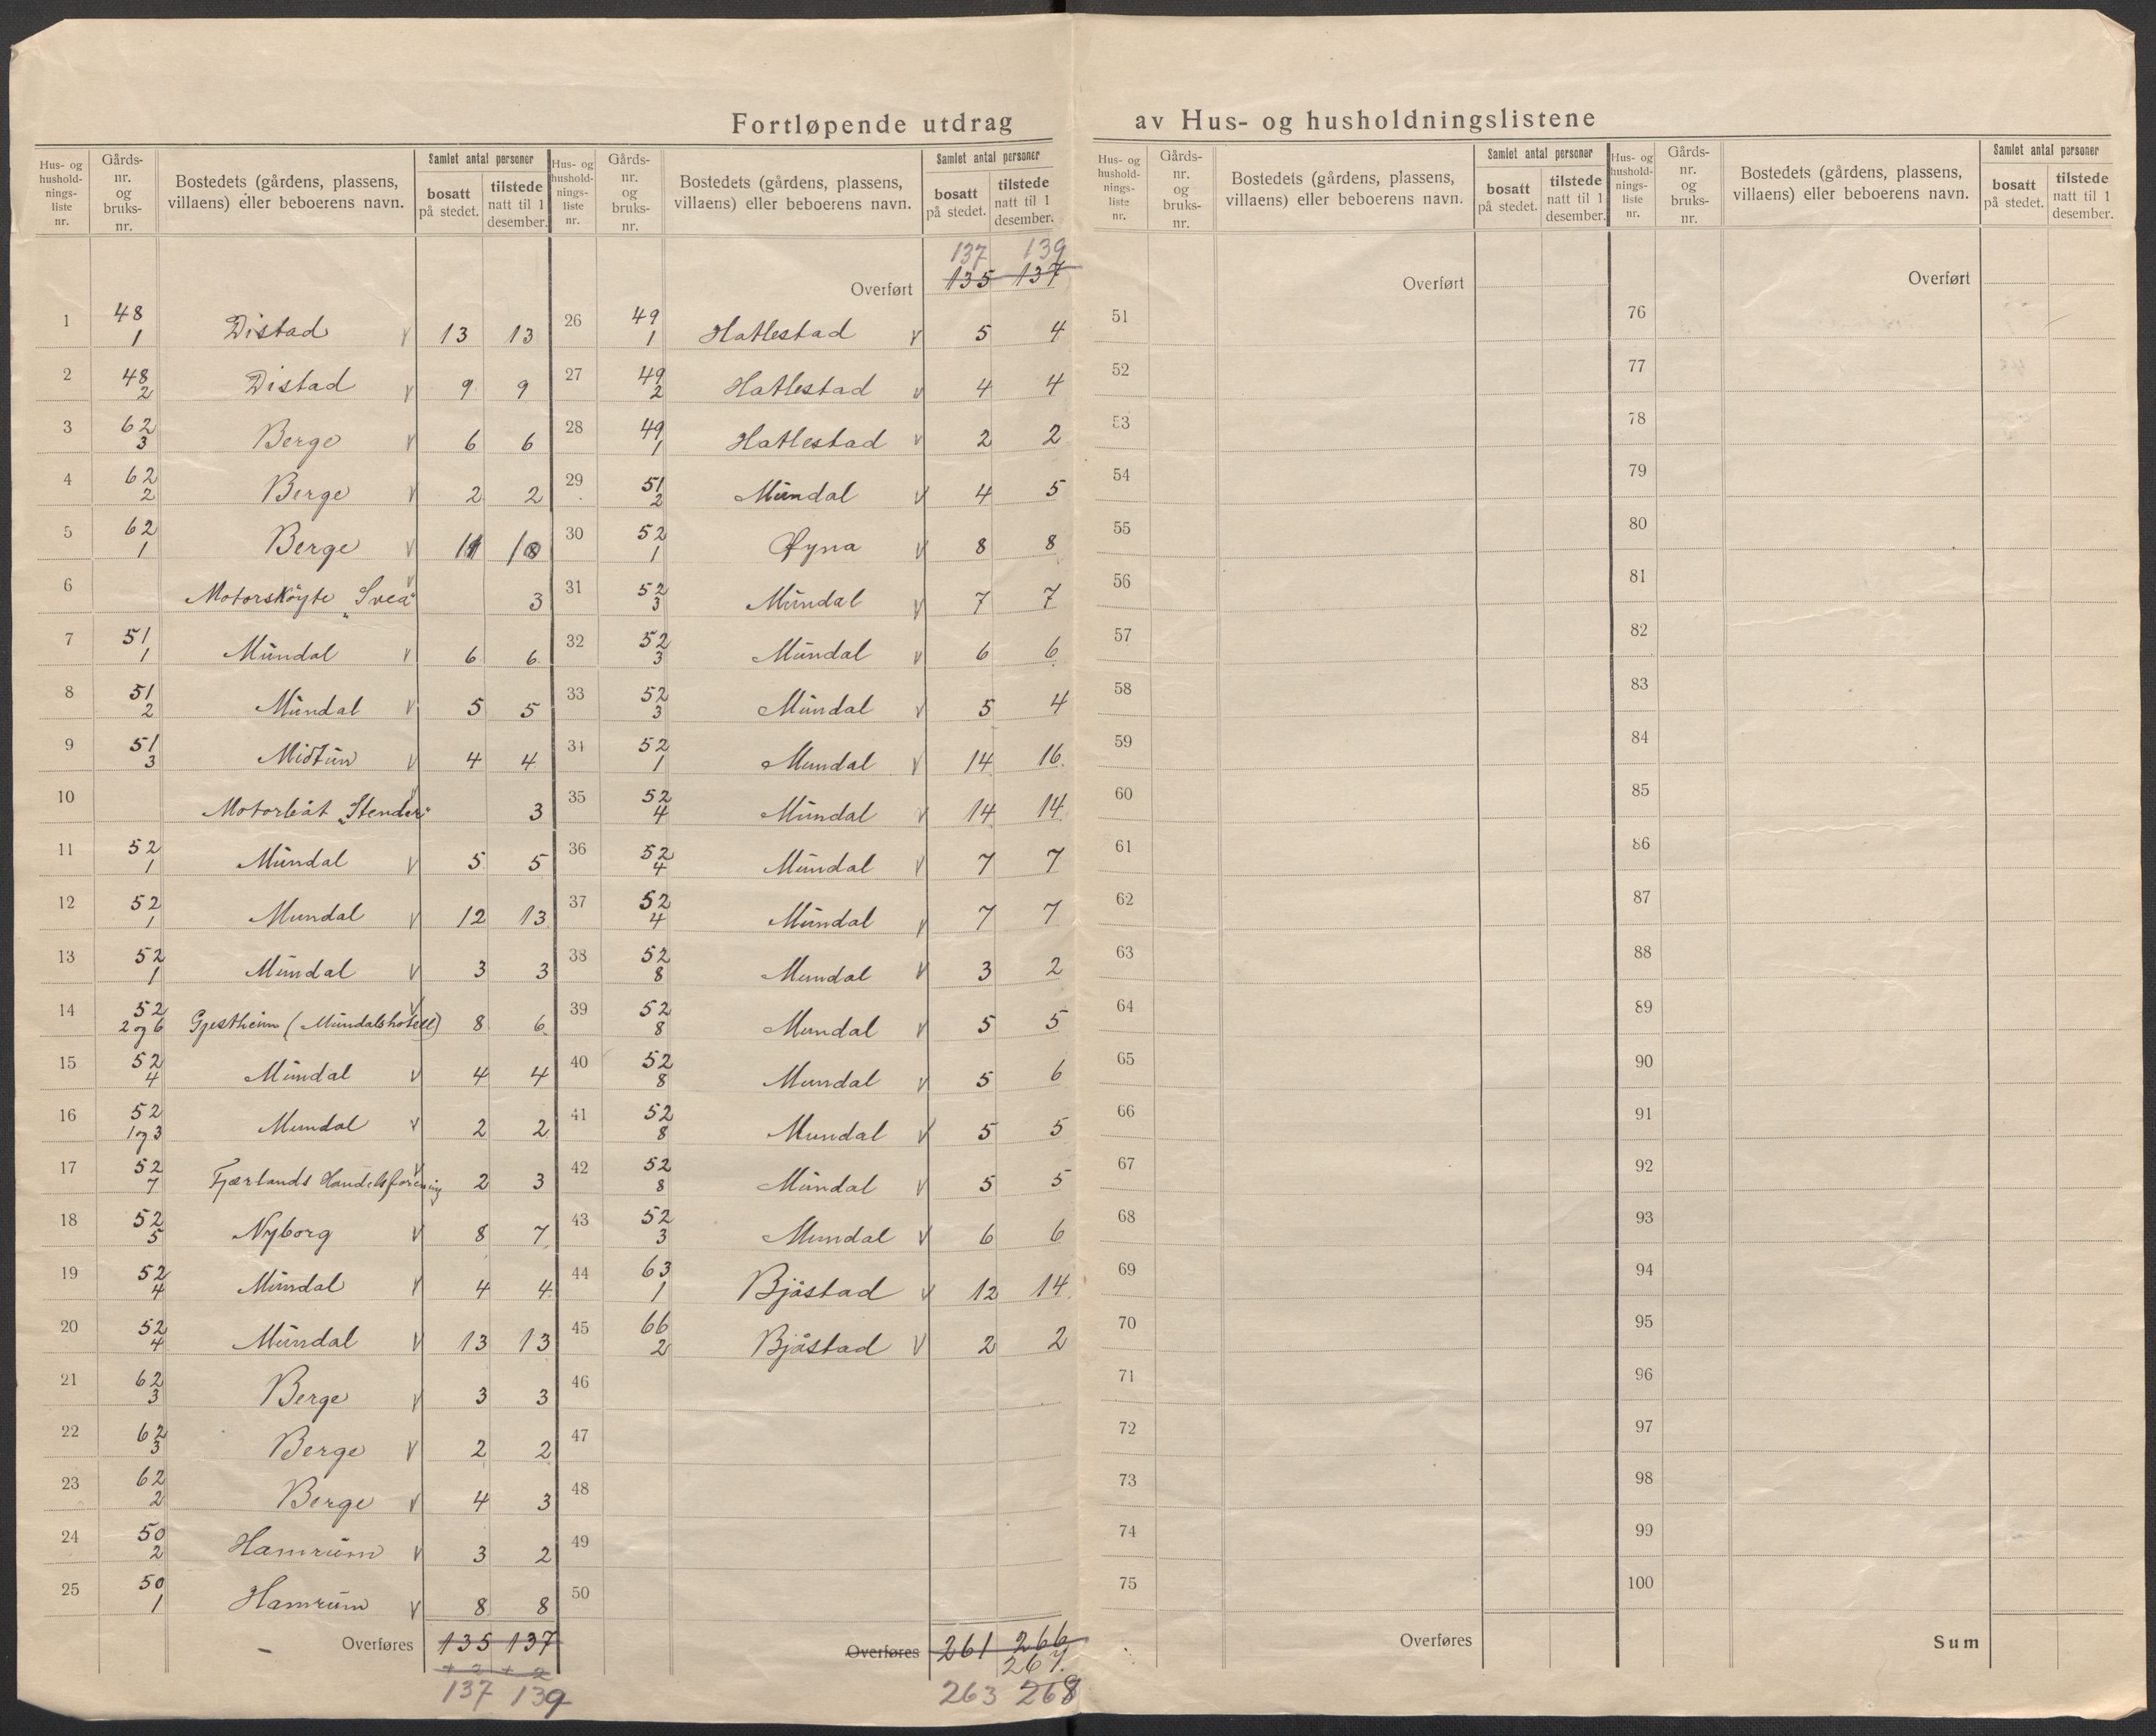 Fortløpende utdrag av Hus- og husholdningslistene
Hus- og husholdnings-liste nr. | Gårds-nr. og bruks-nr. | Bostedets (gårdens, plassens, villaens) eller beboerens navn. | Samlet antal personer bosatt på stedet. | tilstede natt til 1 desember.
1 48 1 Distad v 13 13
2 48 2 Distad v 9 9
3 62 3 Berge v 6 6
4 62 2 Berge v 2 2
5 62 1 Berge v 11 10
6 Motorskøyte „Svea" v 3
7 51 1 Mundal v 6 6
8 51 2 Mundal v 5 5
9 51 3 Midtun v 4 4
10 Motorbåt „Stender" v 3
11 52 1 Mundal v 5 5
12 52 1 Mundal v 12 13
13 52 1 Mundal v 3 3
14 52 2 og 6 Gjestheim (Mundalshotell) v 8 6
15 52 4 Mundal v 4 4
16 52 1 og 3 Mundal v 2 2
17 52 7 Fjærlands Handelsforening v 2 3
18 52 5 Nyborg v 8 7
19 52 4 Mundal v 4 4
20 52 4 Mundal v 13 13
21 62 3 Berge v 3 3
22 62 3 Berge v 2 2
23 62 2 Berge v 4 3
24 50 2 Hamrum v 3 2
25 50 1 Hamrum v 8 8
Overføres 135 137
+ 2 + 2
137 139
Hus- og husholdnings-liste nr. | Gårds-nr. og bruks-nr. | Bostedets (gårdens, plassens, villaens) eller beboerens navn. | Samlet antal personer bosatt på stedet. | tilstede natt til 1 desember.
137 139
Overført 135 137
26 49 1 Hatlestad v 5 4
27 49 2 Hatlestad v 4 4
28 49 1 Hatlestad v 2 2
29 51 2 Mundal v 4 5
30 52 1 Øyna v 8 8
31 52 3 Mundal v 7 7
32 52 3 Mundal v 6 6
33 52 3 Mundal v 5 4
34 52 1 Mundal v 14 16
35 52 4 Mundal v 14 14
36 52 4 Mundal v 7 7
37 52 4 Mundal v 7 7
38 52 8 Mundal v 3 2
39 52 8 Mundal v 5 5
40 52 8 Mundal v 5 6
41 52 8 Mundal v 5 5
42 52 8 Mundal v 5 5
43 52 3 Mundal v 6 6
44 63 1 Bjåstad v 12 14
45 66 2 Bjåstad v 2 2
46
47
48
49
50
Overføres 261 266
267
263 268
Hus- og husholdnings-liste nr. | Gårds-nr. og bruks-nr. | Bostedets (gårdens, plassens, villaens) eller beboerens navn. | Samlet antal personer bosatt på stedet. | tilstede natt til 1 desember.
Overført
51
52
53
54
55
56
57
58
59
60
61
62
63
64
65
66
67
68
69
70
71
72
73
74
75
Overføres
Hus- og husholdnings-liste nr. | Gårds-nr. og bruks-nr. | Bostedets (gårdens, plassens, villaens) eller beboerens navn. | Samlet antal personer bosatt på stedet. | tilstede natt til 1 desember.
Overført
76
77
78
79
80
81
82
83
84
85
86
87
88
89
90
91
92
93
94
95
96
97
98
99
100
Sum